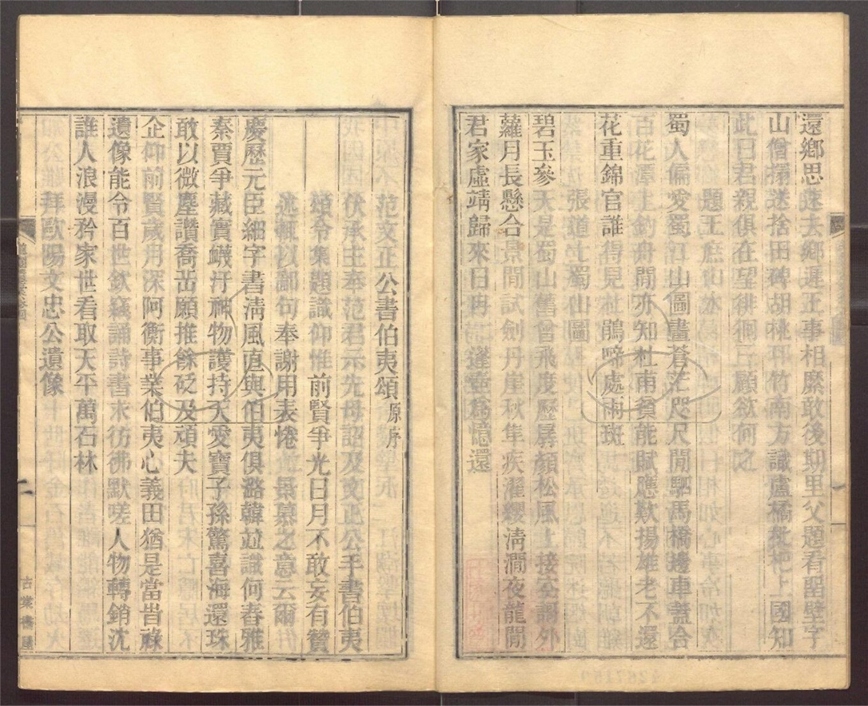 還鄉思遠去鄉遲正事相縻敢後期里父題看留壁字
山僧還送捨田碑胡桃卭竹南方識盧橘枇杷上國知
此日君親俱在望徘徊回顧欲何之
題王庶山水
蜀人偏愛蜀江山圖畫蒼茫咫尺閒駟馬橋邊車蓋合
百花潭上釣舟閒亦知杜甫貧能賦應歎揚雄老不還
花重錦官誰得見杜鵑啼處雨斑斑
張道士蜀山圖
碧玉參天是蜀山舊曾飛度歷孱顏松風上接空謌外
蘿月長懸合景閒試劍丹崖秋隼疾濯纓淸澗夜龍閒
君家虛靖歸來日冉冉蓬萊爲憶還
范文正公書伯夷頌原序
伏承主奉范君示先母詔及文正公手書伯夷
頌令集題識仰惟前賢爭光日月不敢妄有贊
述輒以鄙句奉謝用表惓惓景慕之意云爾
慶歷元臣細字書淸風直與伯夷俱潞韓竝識何舂雅
秦賈爭藏實蠛汙神物護持天愛寶子孫驚喜海還珠
敢以微塵讚喬嶽願推餘砭及頑夫
企仰前賢歲月深阿衡事業伯夷心義田猶是當昔祿
遺像能令百世欽竊誦詩書求彷彿默嗟人物轉銷沈
誰人浪漫矜家世看取天平萬石林
拜歐陽文忠公遺像
古棠書屋